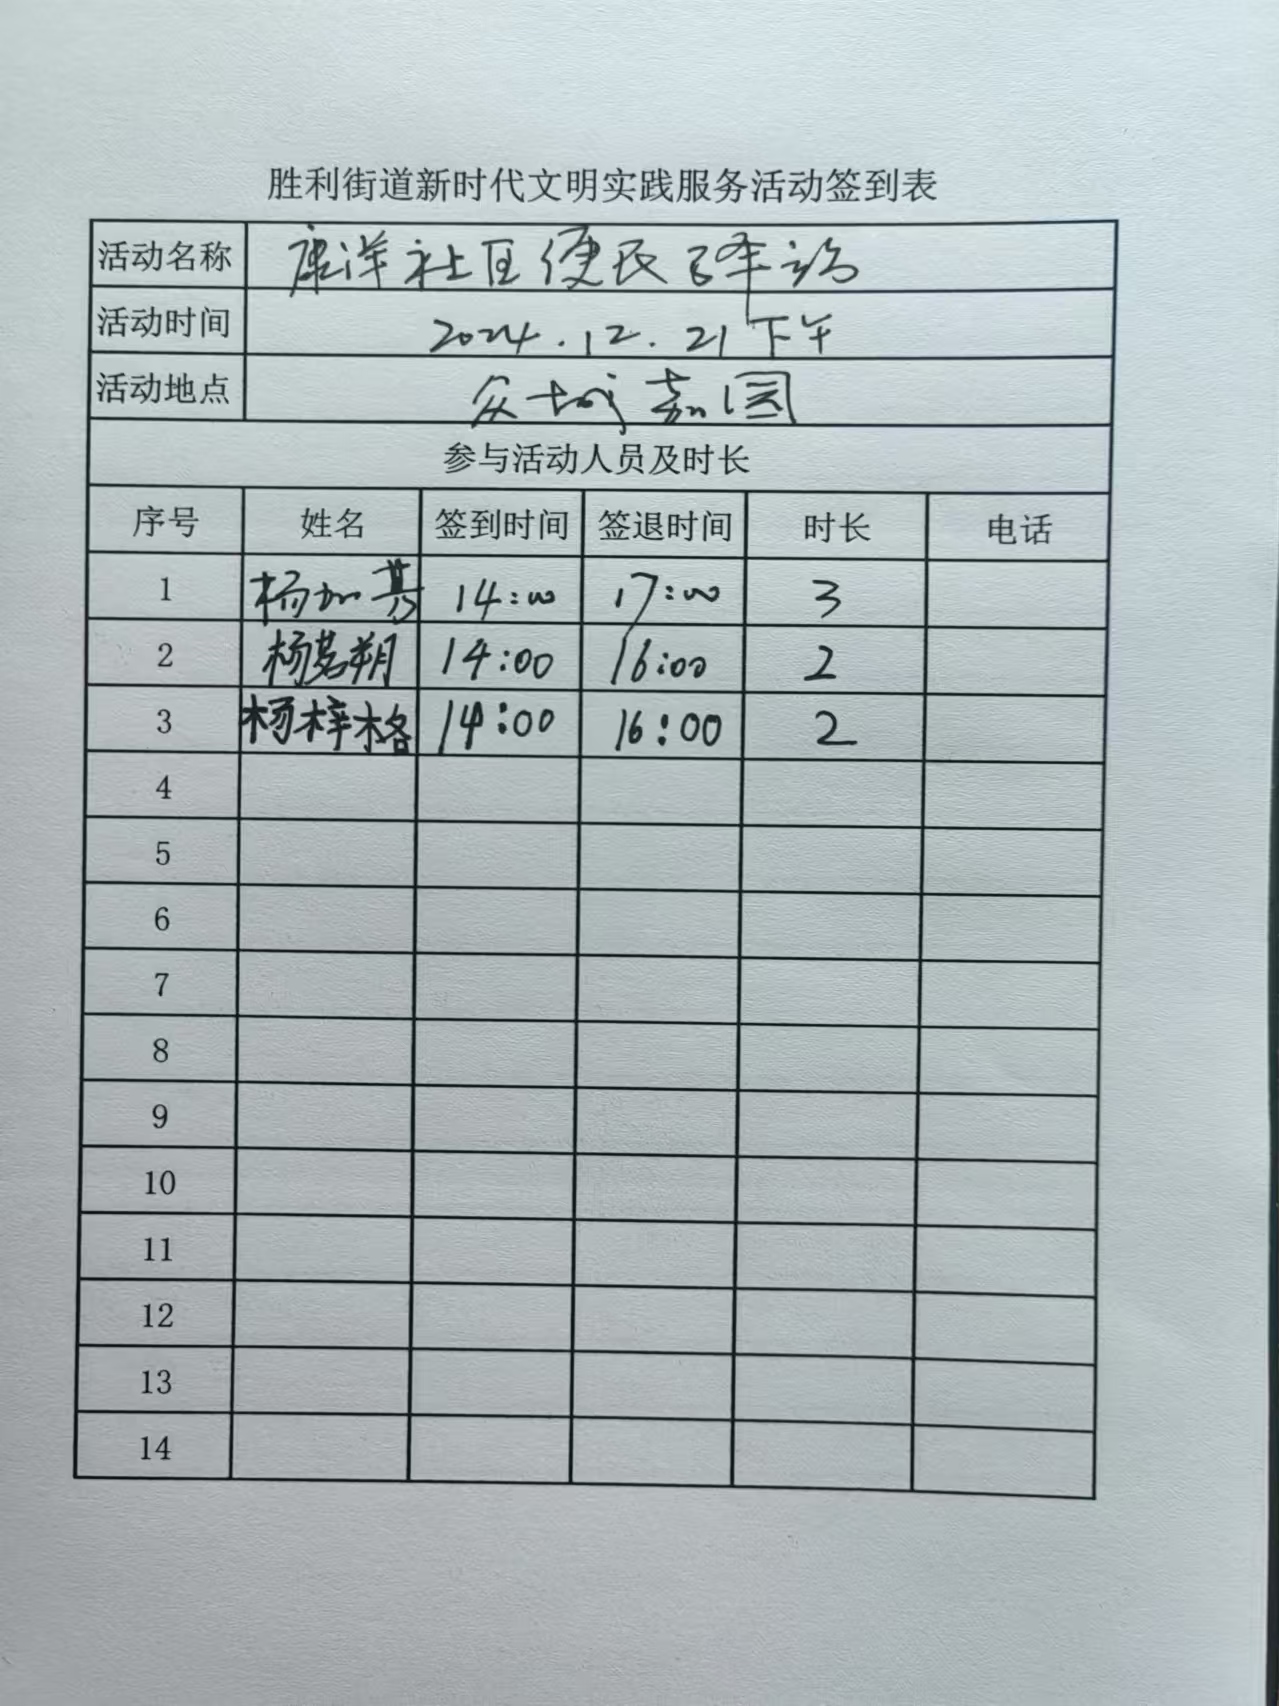 胜利街道新时代文明实践服务活动签到表
活动名称 康洋社区便民驿站
活动时间 2024.12.21下午
活动地点 众城嘉园
参与活动人员及时长
序号 姓名 签到时间 签退时间 时长 电话
1 杨加 14:00 17:00 3
2 杨茗朔 14:00 16:00 2
3 杨梓格 14:00 16:00 2
4
5
6
7
8
9
10
11
12
13
14